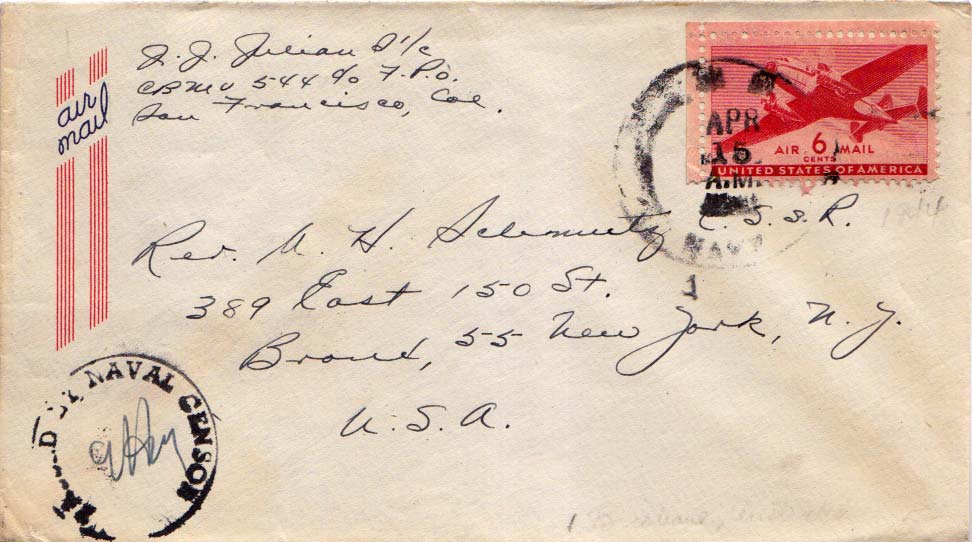 J. J. Julian S1/c
CBMU 544 c/o F.P.O.
San Francisco, Cal.
air
mail
APR
15
A.M.
NAVY
1
AIR 6 MAIL
CENTS
UNITED STATES OF AMERICA
Rev. A. H. Schmutz C.S.S.R.
389 East 150 St.
Bronx, 55 New York, N.Y.
U.S.A.
NAVAL CENSOR